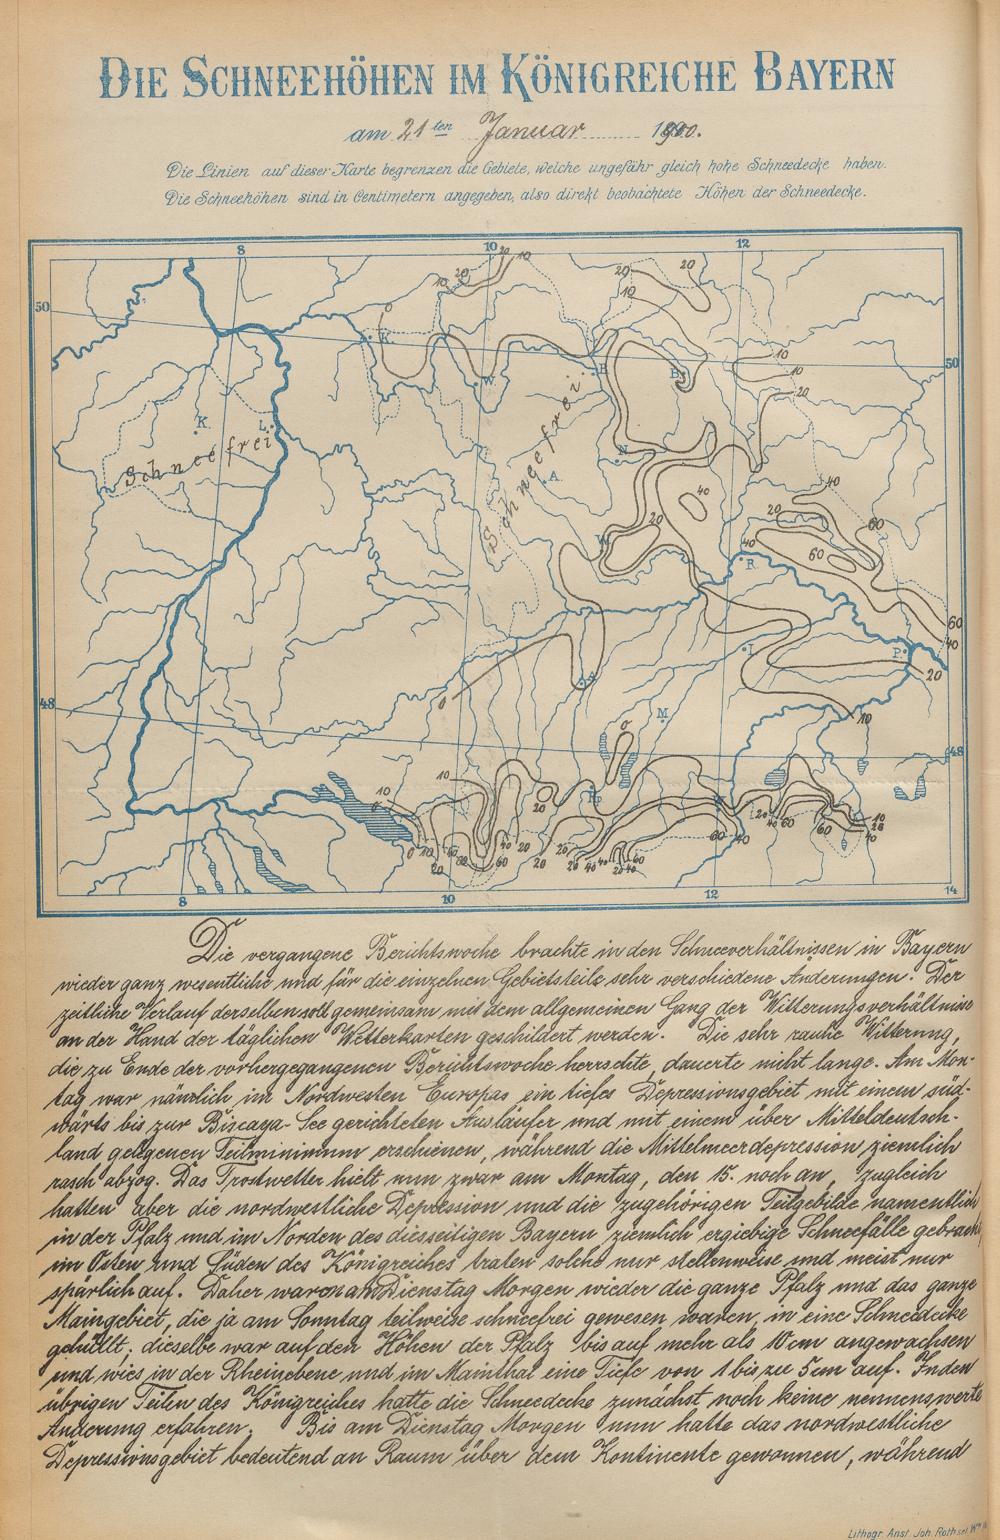 DIE SCHNEEHÖHEN IM KÖNIGREICHE BAYERN
am 21ten Januar 1900.
Die Linien auf dieser Karte begrenzen die Gebiete, welche ungefähr gleich hohe Schneedecke haben.
Die Schneehöhen sind in Centimetern angegeben, also direkt beobachtete Höhen der Schneedecke.
8 10 12
20 20 10 20 20
10 10
50 0
K. 10 50
W. B B. 10
20
K. L.
Schneefrei
Schneefrei
N
A
40 40
20 20 60
W 40 60
R.
60
40
I. P.
20
0 A 10
48 M 48
0
10
10 20
0 20 40 60 10
60 40 60 20
0 10 60 60 40 20 40
20 60 20 20 40 40 60
20 40
8 10 12 14
Die vergangene Berichtswoche brachte in den Schneeverhältnissen in Bayern
wieder ganz wesentliche und für die einzelnen Gebietsteile sehr verschiedene Änderungen. Der
zeitliche Verlauf derselben soll gemeinsam mit dem allgemeinen Gang der Witterungsverhältnisse
an der Hand der täglichen Wetterkarten geschildert werden. Die sehr rauhe Witterung,
die zu Ende der vorhergegangenen Berichtswoche herrschte, dauerte nicht lange. Am Mon-
tag war nämlich im Nordwesten Europas ein tiefes Depressionsgebiet mit einem süd-
wärts bis zur Biscaya-See gerichteten Ausläufer und mit einem über Mitteldeutsch-
land gelegenen Teilminimum erschienen, während die Mittelmeerdepression ziemlich
rasch abzog. Das Frostwetter hielt nun zwar am Montag, den 15. noch an, zugleich
hatten aber die nordwestliche Depression und die zugehörigen Teilgebilde namentlich
in der Pfalz und im Norden des diesseitigen Bayern ziemlich ergiebige Schneefälle gebracht,
im Osten und Süden des Königreiches traten solche nur stellenweise und meist nur
spärlich auf. Daher waren am Dienstag Morgen wieder die ganze Pfalz und das ganze
Maingebiet, die ja am Sonntag teilweise schneefrei gewesen waren, in eine Schneedecke
gehüllt; dieselbe war auf den Höhen der Pfalz bis auf mehr als 10 cm angewachsen
und wies in der Rheinebene und im Mainthal eine Tiefe von 1 bis zu 5 cm auf. In den
übrigen Teilen des Königreiches hatte die Schneedecke zunächst noch keine nennenswerte
Änderung erfahren. Bis am Dienstag Morgen nun hatte das nordwestliche
Depressionsgebiet bedeutend an Raum über dem Kontinente gewonnen, während
Lithogr. Anst. Joh. Roth sel. Wwe